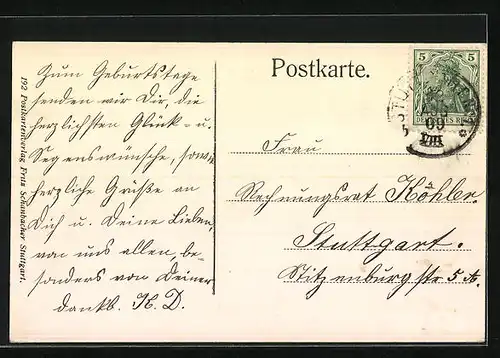 Zum Geburtstage
senden wir Dir, die
herzlichsten Glück- u.
Segenswünsche, sowie
herzliche Grüße an
Dich u. Deine Lieben,
von uns allen, be-
sonders von Deiner
dankb. H. D.
192 Postkartenverlag Fritz Schönbacher Stuttgart.
Postkarte.
5 5
DEUTSCHES REICH
09
VIII
Frau
Rechnungsrat Köhler.
Stuttgart.
Sitzenburgstr 5 A.